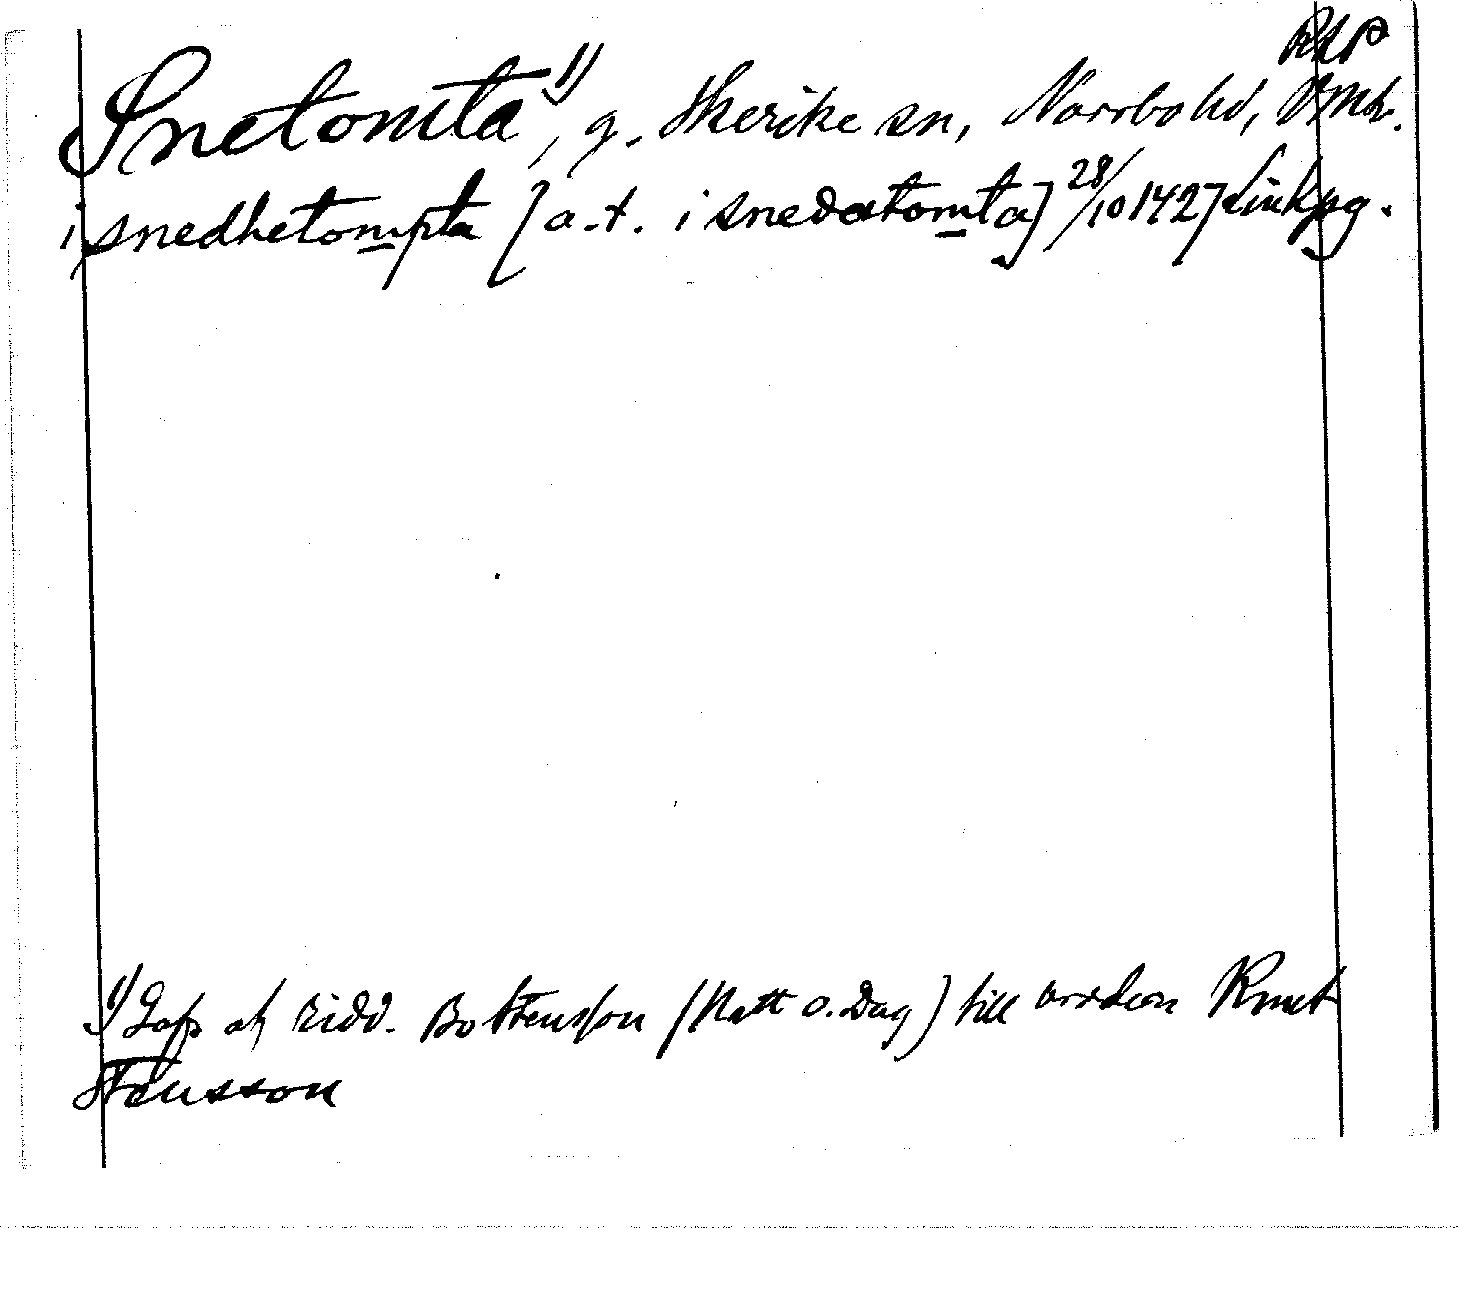 RAP
Snetomta 1), g., Skerike sn, Norrbo hd, Vmdl.
i snedhetompta [a.t. i snedatomta] 28/10 1427 Linkpg.
1) Gafs af ridd. Bo Stensson (Natt o. Dag) till brodern Knut
Stensson